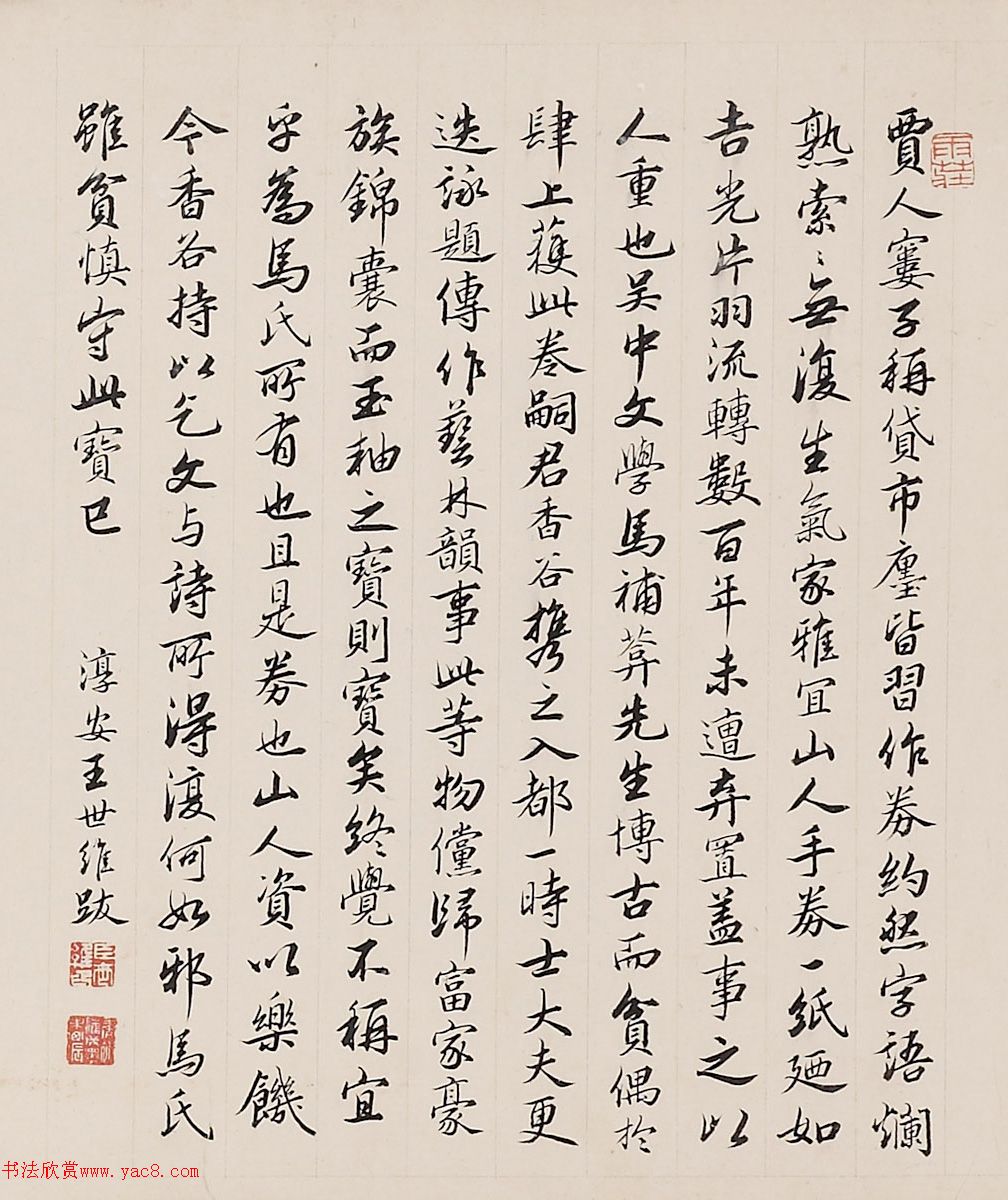 雨莊
賈人窶子稱貸市廛皆習作券約然字語爛
熟索〻無復生氣家雅宜山人手券一紙廼如
吉光片羽流轉數百年未遭弃置盖事之以
人重也吴中文學馬補葊先生博古而貧偶於
肆上蒦此卷嗣君香谷携之入都一時士大夫更
迭詠題傳作藝林韻事此等物儻歸富家豪
族錦囊而玉軸之寶則寶矣終覺不稱宜
乎爲馬氏所有也且是券也山人資以樂饑
今香谷持以乞文与詩所淂復何如邪馬氏
雖貧慎守此寶已
淳安王世維跋
书法欣赏www.yac8.com